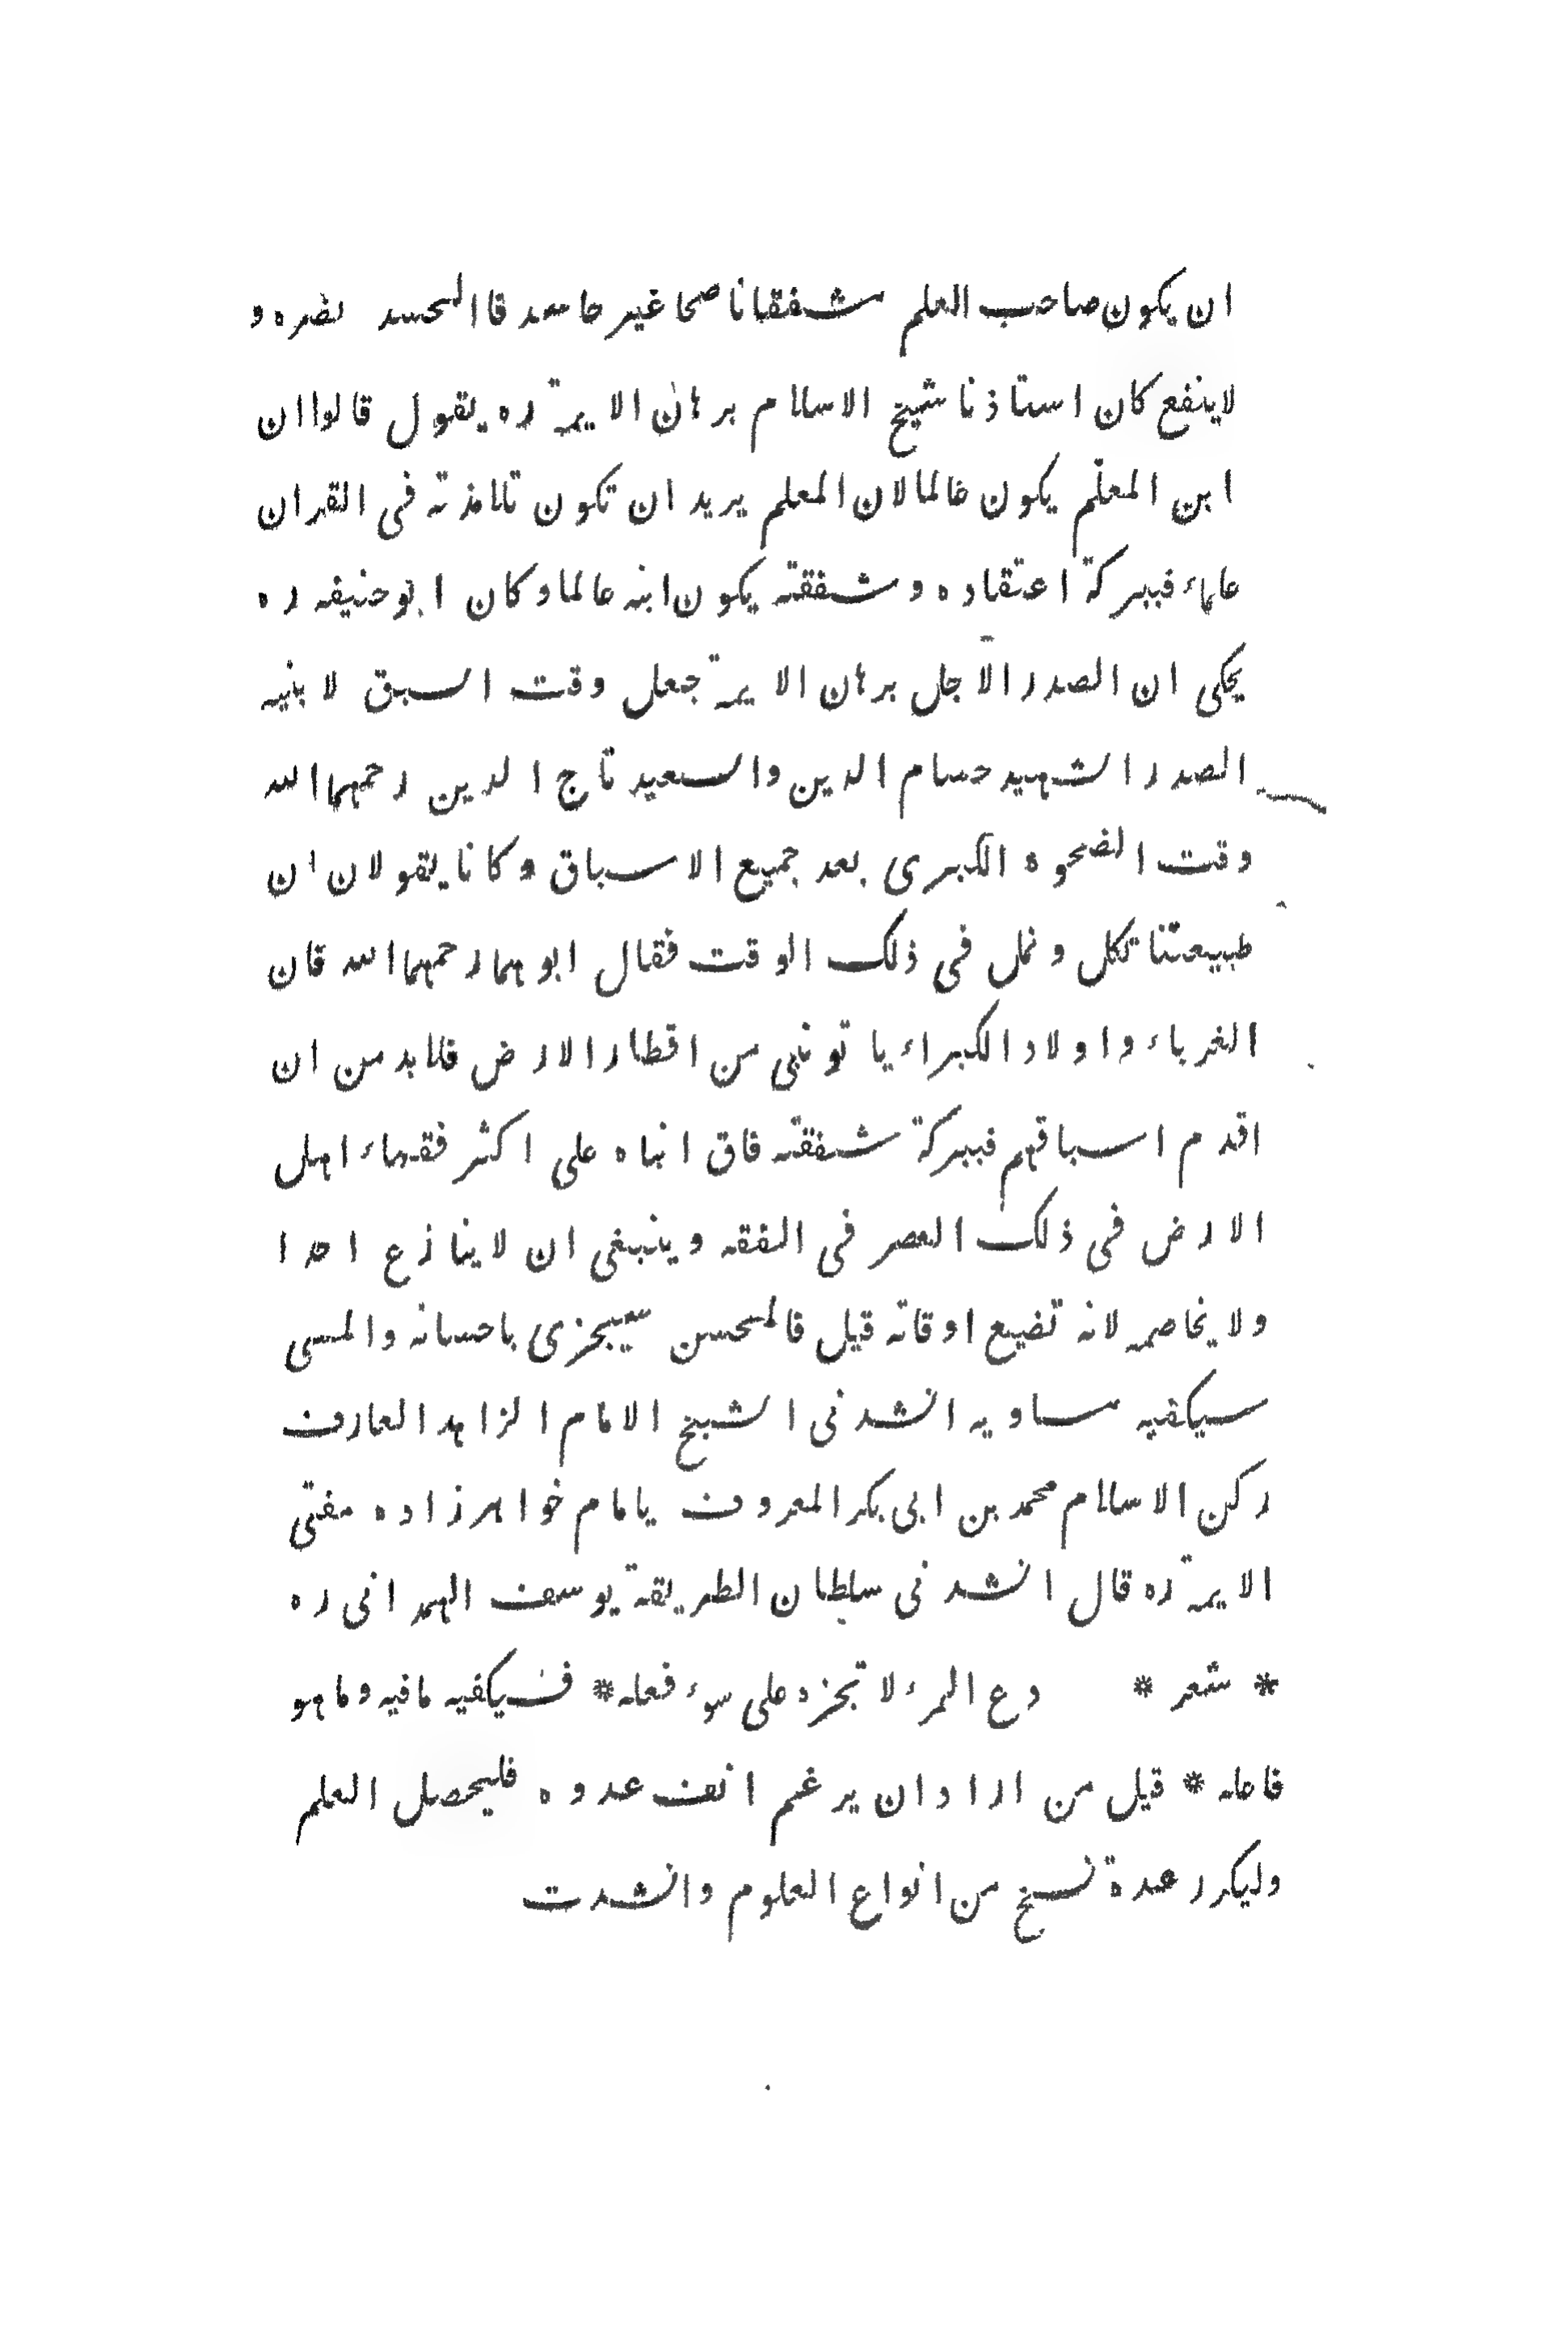 ان يكون صاحب العلم مشفقانا صحا غير حاسد فاالحسد يضره و
لاينفع كان استاذنا شيخ الاسلام برهان الايمة ره يقول قالواان
ابن المعلّم يكون عالمالان المعلم يريد ان تكون تلامذته فى القران
علماء فببركة اعتقاده وشفقته يكون ابنه عالما وكان ابوحنيفه ره
يحكى ان الصدر الاجل برهان الايمة جعل وقت السبق لابنيه
الصدر الشهيد حسام الدين والسعيد تاج الدين رحمهماالله
وقت الضحوه الكبرى بعد جميع الاسباق وكانا يقولان ان
طبيعتنا تكل وتمل فى ذلك الوقت فقال ابوهما رحمهماالله فان
الغرباء واولاد الكبراء يا توننى من اقطار الارض فلابد من ان
اقدم اسباقهم فببركة شفقته فاق ابناه على اكثر فقهاء اهل
الارض فى ذلك العصر فى الفقه وينبغى ان لاينازع احدا
ولا يخاصمه لانه تضيع اوقاته قيل فالمحسن سيجزى باحسانه والمسى
سيكفيه مساويه انشدنى الشيخ الامام الزاهد العارف
ركن الاسلام محمد بن ابى بكر المعروف يامام خواهرزاده مفتى
الايمة ره قال انشدنى سلطان الطريقة يوسف الهمدانى ره
* شعر * دع المرء لا تجزه على سوء فعله * فسيكفيه مافيه وماهو
فاعله * قيل من ارادان يرغم انف عدوه فليحصل العلم
وليكرر عدة نسخ من انواع العلوم وانشدت